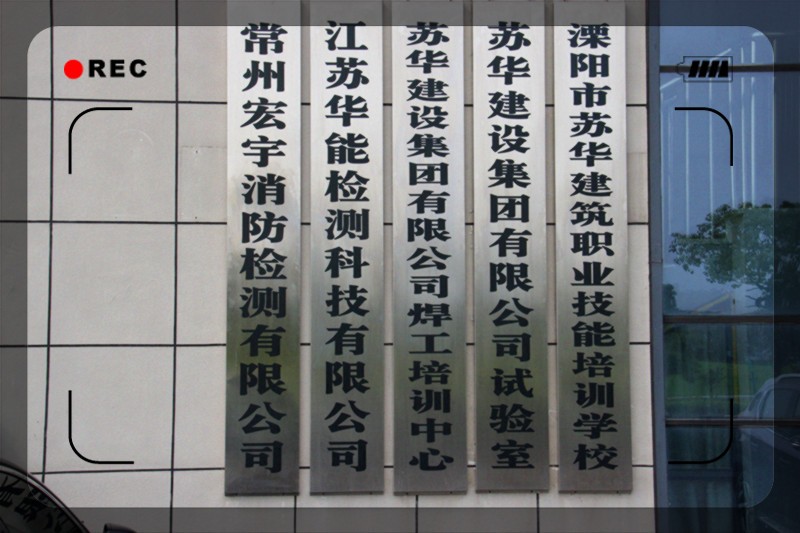 REC
常州宏宇消防检测有限公司
江苏华能检测科技有限公司
苏华建设集团有限公司焊工培训中心
苏华建设集团有限公司试验室
溧阳市苏华建筑职业技能培训学校